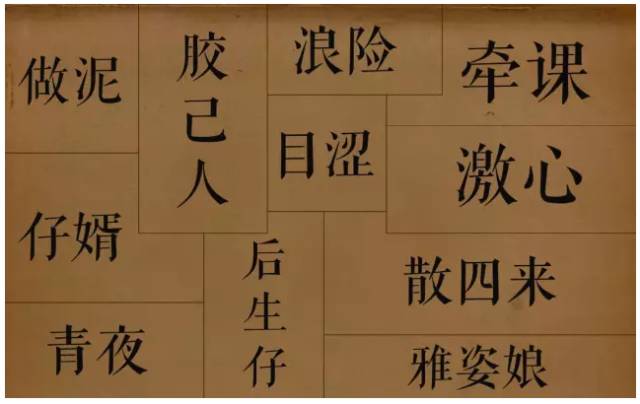 做泥
胶己人
浪险
牵课
目涩
激心
仔婿
后生仔
散四来
青夜
雅姿娘